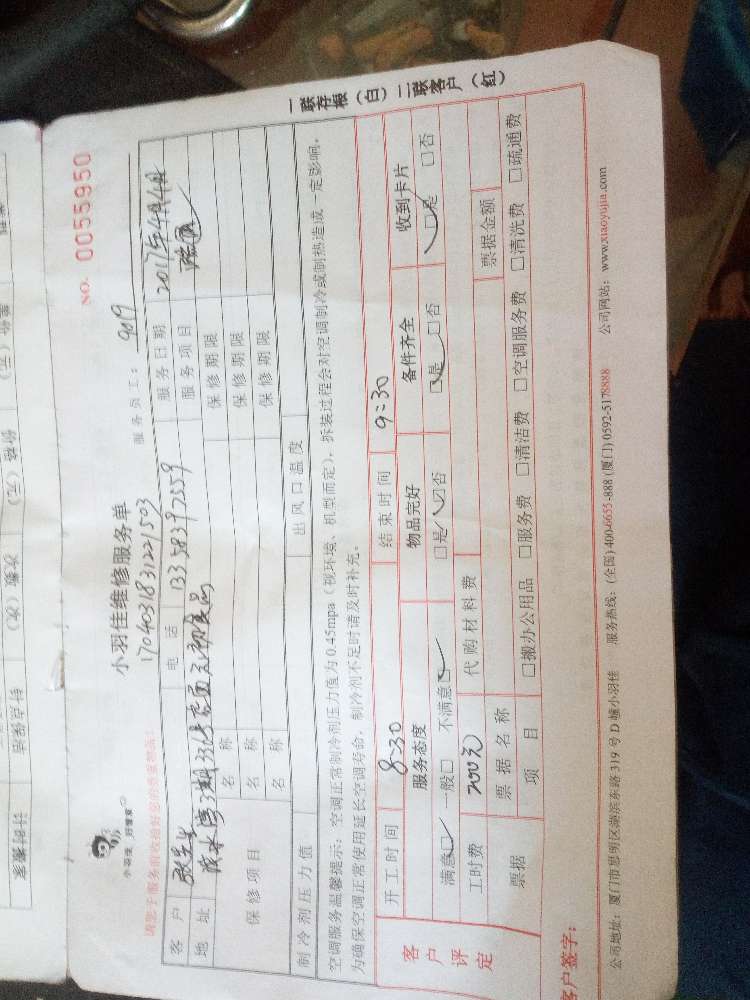 NO. 0055950
小羽佳维修服务单
小羽佳 好管家
1704031831221503
服务员工： 9019
请您于服务前收拾好您的贵重物品！
客户 张先生 电话 13358397559 服务日期 2017年4月4日
地址 服务项目
保修项目 名称 保修期限
名称 保修期限
名称 保修期限
制冷剂压力值 出风口温度
空调服务温馨提示：空调正常制冷剂压力值为0.45mpa（视环境、机型而定），拆装过程会对空调制冷或制热造成一定影响，
为确保空调正常使用延长空调寿命，制冷剂不足时请及时补充。
客户评定
开工时间 8:30 结束时间 9:30
服务态度 物品完好 备件齐全 收到卡片
满意□ 一般□ 不满意□ □是 □否 □是 □否 □是 □否
工时费 200元 代购材料费
票据 票据名称 票据金额
项目 □搬办公用品 □服务费 □清洁费 □空调服务费 □清洗费 □疏通费
客户签字：
公司地址：厦门市思明区湖滨东路319号D幢小羽佳 服务热线：(全国)400-6655-888 (厦门)0592-5178888 公司网站：www.xiaoyujia.com
一联存根（白）二联客户（红）